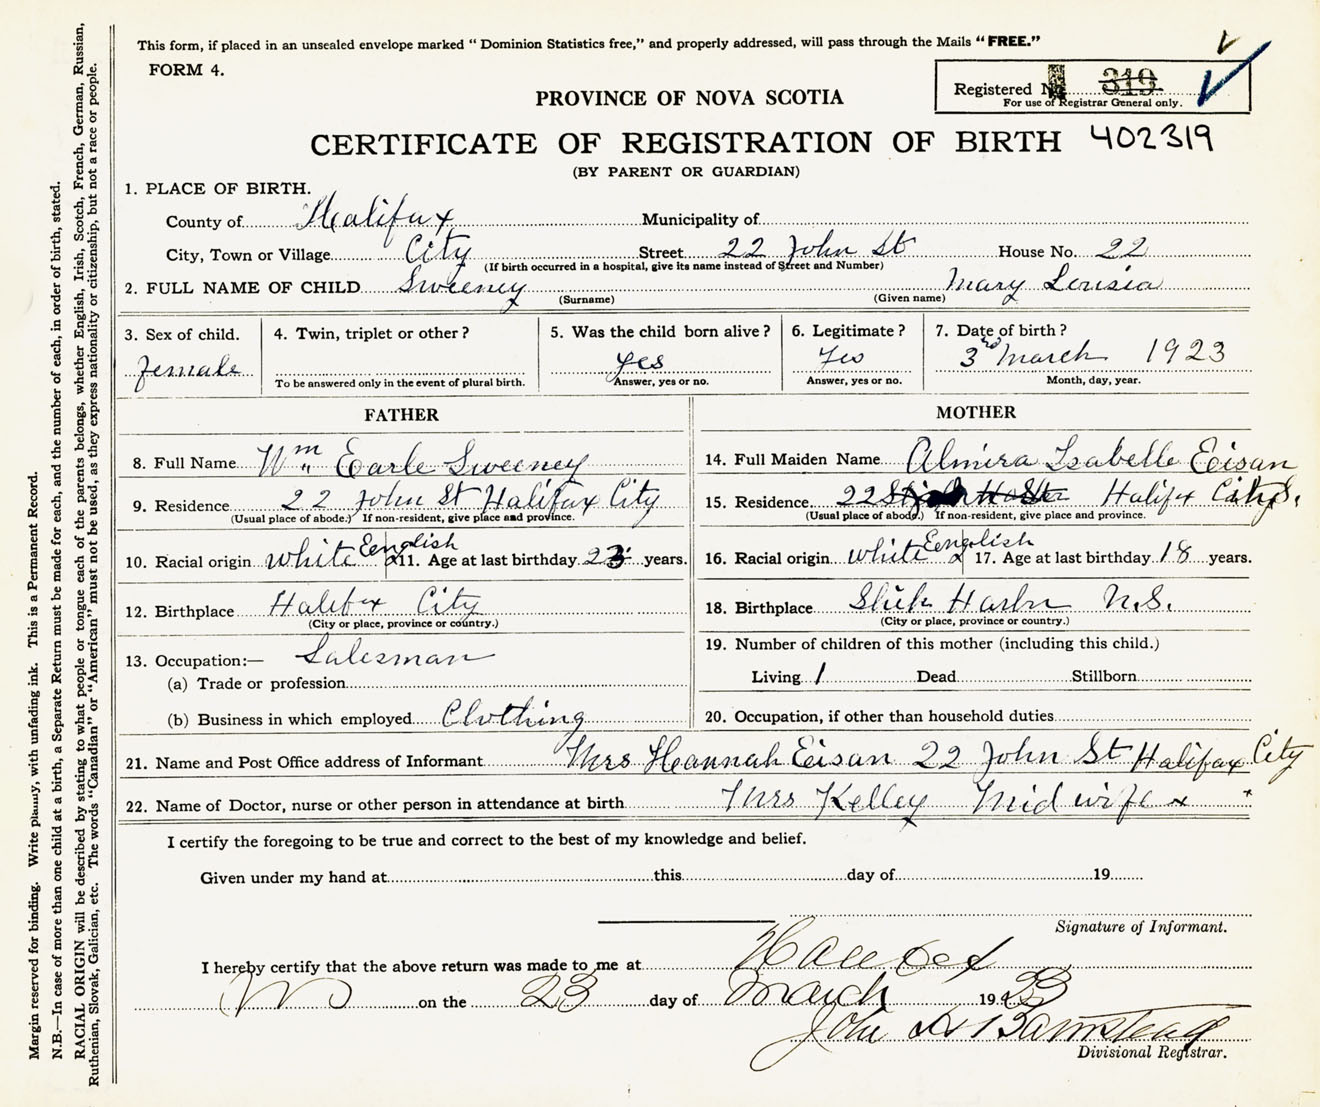 This form, if placed in an unsealed envelope marked "Dominion Statistics free," and properly addressed, will pass through the Mails "FREE."
FORM 4.
Registered No. 319
For use of Registrar General only.
PROVINCE OF NOVA SCOTIA
CERTIFICATE OF REGISTRATION OF BIRTH 402319
(BY PARENT OR GUARDIAN)
1. PLACE OF BIRTH.
County of Halifax Municipality of
City, Town or Village City Street 22 John St House No. 22
(If birth occurred in a hospital, give its name instead of Street and Number)
2. FULL NAME OF CHILD Sweeney Mary Louisia
(Surname) (Given name)
3. Sex of child. 4. Twin, triplet or other? 5. Was the child born alive? 6. Legitimate? 7. Date of birth?
female yes Yes 3rd March 1923
To be answered only in the event of plural birth. Answer, yes or no. Answer, yes or no. Month, day, year.
FATHER
8. Full Name Wm Earle Sweeney
9. Residence 22 John St Halifax City
(Usual place of abode.) If non-resident, give place and province.
10. Racial origin white English 11. Age at last birthday 23 years.
12. Birthplace Halifax City
(City or place, province or country.)
13. Occupation:— Salesman
(a) Trade or profession
(b) Business in which employed Clothing
MOTHER
14. Full Maiden Name Almira Isabelle Eisan
15. Residence 22 Halifax City
(Usual place of abode.) If non-resident, give place and province.
16. Racial origin white English 17. Age at last birthday 18 years.
18. Birthplace Harbr N.S.
(City or place, province or country.)
19. Number of children of this mother (including this child.)
Living 1 Dead Stillborn
20. Occupation, if other than household duties
21. Name and Post Office address of Informant Mrs Heannah Eisan 22 John St Halifax City
22. Name of Doctor, nurse or other person in attendance at birth Mrs Kelley Midwife
I certify the foregoing to be true and correct to the best of my knowledge and belief.
Given under my hand at this day of 19
Signature of Informant.
I hereby certify that the above return was made to me at
on the 23 day of March 1923
John Barnstead
Divisional Registrar.
Margin reserved for binding. Write plainly, with unfading ink. This is a Permanent Record.
N.B.—In case of more than one child at a birth, a Separate Return must be made for each, and the number of each, in order of birth, stated.
RACIAL ORIGIN will be described by stating to what people or tongue each of the parents belongs, whether English, Irish, Scotch, French, German, Russian,
Ruthenian, Slovak, Galician, etc. The words "Canadian" or "American" must not be used, as they express nationality or citizenship, but not a race or people.